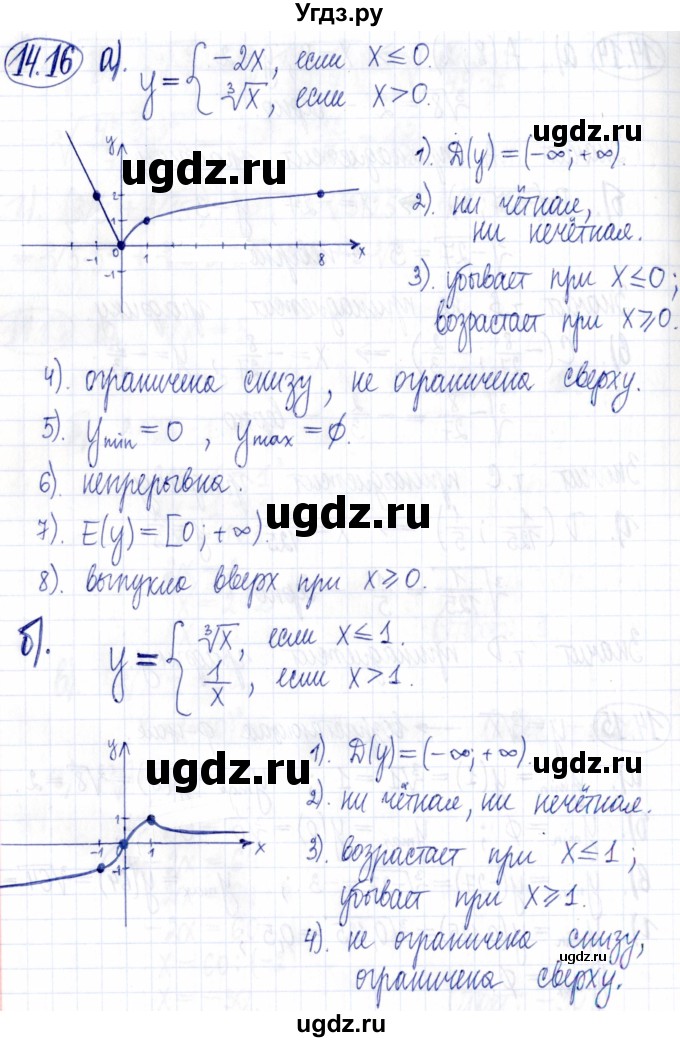 Угдз.ру
14.16 а). y = { -2x, если x ≤ 0.
∛x, если x > 0.
ugdz.ru
y
2
1
-1
0
1
8
x
-1
1). D(y) = (-∞; +∞).
2). ни чётная,
ни нечётная.
3). убывает при x ≤ 0;
возрастает при x ≥ 0.
ugdz.ru
4). ограничена снизу, не ограничена сверху.
5). y min = 0, y max = ∅.
6). непрерывна.
7). E(y) = [0; +∞)
ugdz.ru
8). выпукла вверх при x ≥ 0.
б). y = { ∛x, если x ≤ 1.
1/x, если x > 1.
ugdz.ru
y
1
-1
0
1
x
-1
1). D(y) = (-∞; +∞).
ugdz.ru
2). ни чётная, ни нечётная.
3). возрастает при x ≤ 1;
убывает при x ≥ 1.
4). не ограничена снизу,
ограничена сверху.
ugdz.ru
ugdz.ru